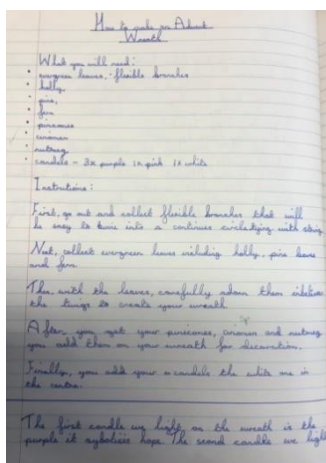 How to make an Advent
Wreath
What you will need:
• evergreen leaves, - flexible branches
• holly,
• pine,
• fern
• pinecones
• cinamon
• nutmeg
• candels - 3x purple 1x pink 1x white
Instrutions:
First, go out and collect flexible branches that will
be easy to twine into a continues circle tying with string
Next, collect evergreen leaves including holly, pine leaves
and fern.
Then with the leaves, carefully adorn them
the twigs to create your wreath
After, you get your pinecones, cinamon and nutmeg
you add them on your wreath for decoration.
Finally, you add your candels the white one in
the centre.
The first candle we light on the wreath is the
purple it symbolises hope. The second candle we light